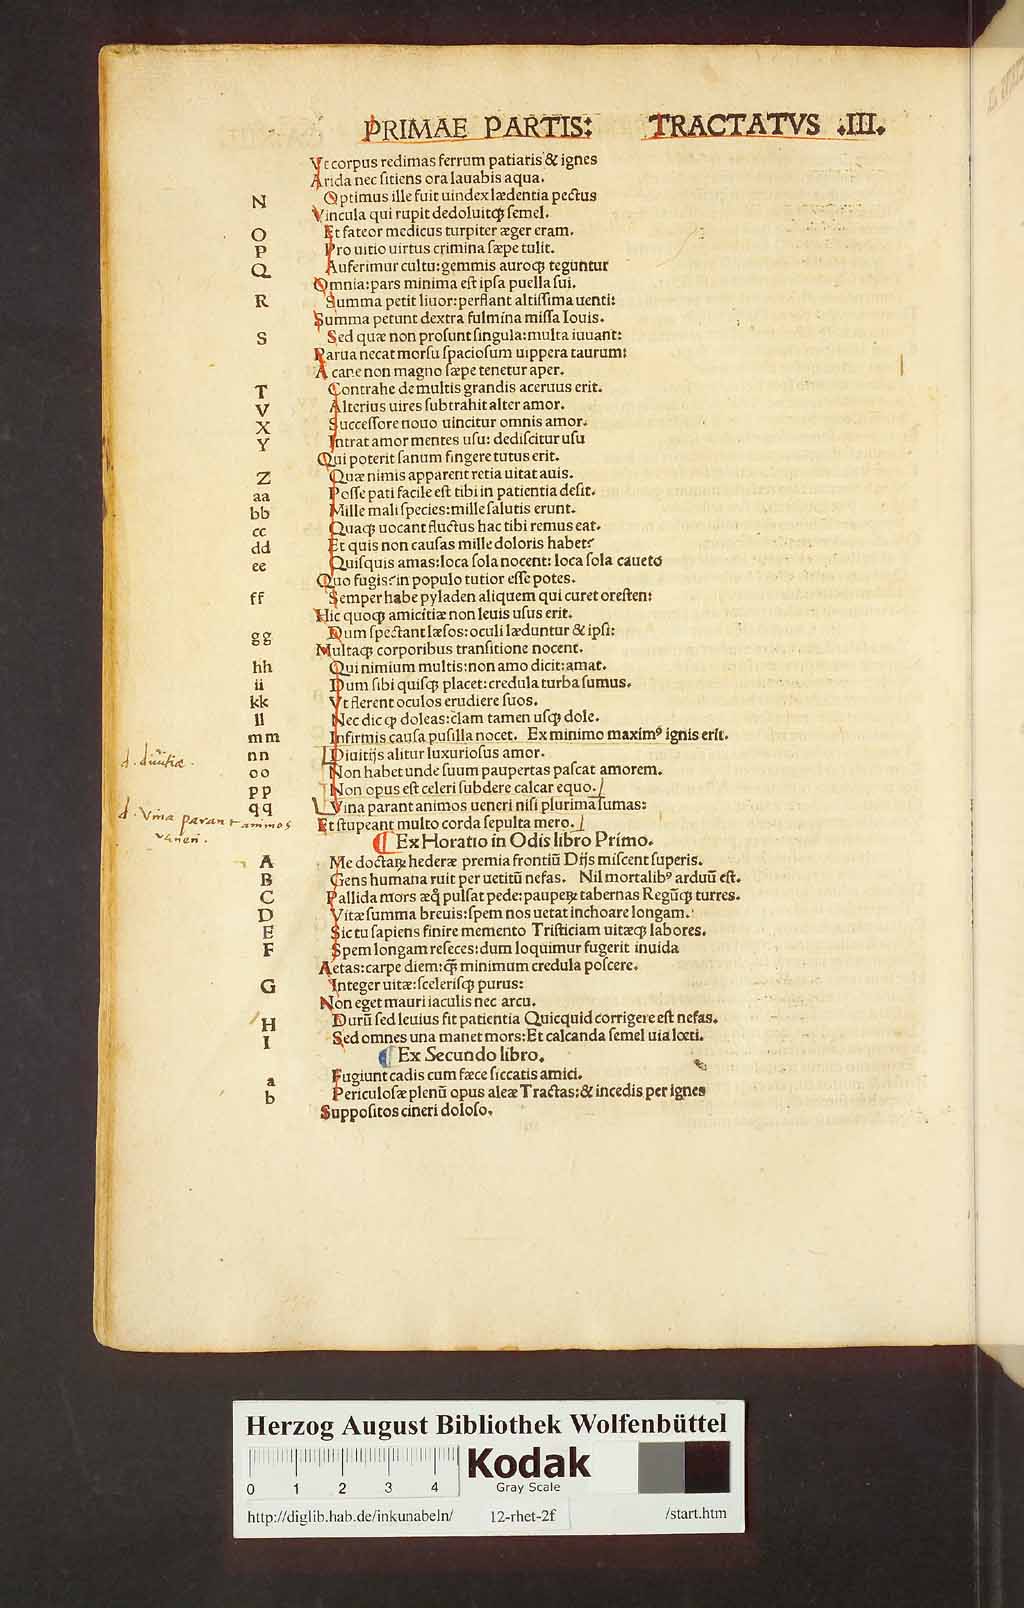 PRIMAE PARTIS: TRACTATVS .III.
Vt corpus redimas ferrum patiaris & ignes
Arida nec ſitiens ora lauabis aqua.
N Optimus ille fuit uindex lædentia pectus
Vincula qui rupit dedoluitqꝫ ſemel.
O Et fateor medicus turpiter æger eram.
P Pro uitio uirtus crimina ſæpe tulit.
Q Auferimur cultu: gemmis auroqꝫ teguntur
Omnia: pars minima eſt ipſa puella ſui.
R Summa petit liuor: perflant altiſſima uenti:
Summa petunt dextra fulmina miſſa Iouis.
S Sed quæ non proſunt ſingula: multa iuuant:
Parua necat morſu ſpacioſum uippera taurum:
A cane non magno ſæpe tenetur aper.
T Contrahe de multis grandis aceruus erit.
V Alterius uires ſubtrahit alter amor.
X Succeſſore nouo uincitur omnis amor.
Y Intrat amor mentes uſu: dediſcitur uſu
Qui poterit ſanum fingere tutus erit.
Z Quæ nimis apparent retia uitat auis.
aa Poſſe pati facile eſt tibi in patientia deſit.
bb Mille mali ſpecies: mille ſalutis erunt.
cc Quaqꝫ uocant fluctus hac tibi remus eat.
dd Et quis non cauſas mille doloris habet?
ee Quiſquis amas: loca ſola nocent: loca ſola caueto
Quo fugis? in populo tutior eſſe potes.
ff Semper habe pyladen aliquem qui curet oreſten:
Hic quoqꝫ amicitiæ non leuis uſus erit.
gg Dum ſpectant læſos: oculi læduntur & ipſi:
Multaqꝫ corporibus tranſitione nocent.
hh Qui nimium multis: non amo dicit: amat.
ii Dum ſibi quiſqꝫ placet: credula turba ſumus.
kk Vt flerent oculos erudiere ſuos.
ll Nec dic ꝙ doleas: clam tamen uſqꝫ dole.
mm Infirmis cauſa puſilla nocet. Ex minimo maximꝰ ignis erit.
d. diuitiæ.
nn Diuitijs alitur luxurioſus amor.
oo Non habet unde ſuum paupertas paſcat amorem.
pp Non opus eſt celeri ſubdere calcar equo.
d. Vina parant animos
veneri.
qq Vina parant animos ueneri niſi plurima ſumas:
Et ſtupeant multo corda ſepulta mero.
¶ Ex Horatio in Odis libro Primo.
A Me doctaꝝ hederæ premia frontiū Dijs miſcent ſuperis.
B Gens humana ruit per uetitū nefas. Nil mortalibꝰ arduū eſt.
C Pallida mors æq̃ pulſat pede: paupeꝝ tabernas Regūqꝫ turres.
D Vitæ ſumma breuis: ſpem nos uetat inchoare longam.
E Sic tu ſapiens finire memento Triſticiam uitæqꝫ labores.
F Spem longam reſeces: dum loquimur fugerit inuida
Aetas: carpe diem: q̃ꝫ minimum credula poſcere.
G Integer uitæ: ſceleriſqꝫ purus:
Non eget mauri iaculis nec arcu.
H Durū ſed leuius fit patientia Quicquid corrigere eſt nefas.
I Sed omnes una manet mors: Et calcanda ſemel uia lœti.
¶ Ex Secundo libro.
a Fugiunt cadis cum fæce ſiccatis amici.
b Periculoſæ plenū opus aleæ Tractas: & incedis per ignes
Suppoſitos cineri doloſo.
Herzog August Bibliothek Wolfenbüttel
0 1 2 3 4
Kodak
Gray Scale
http://diglib.hab.de/inkunabeln/ 12-rhet-2f /start.htm